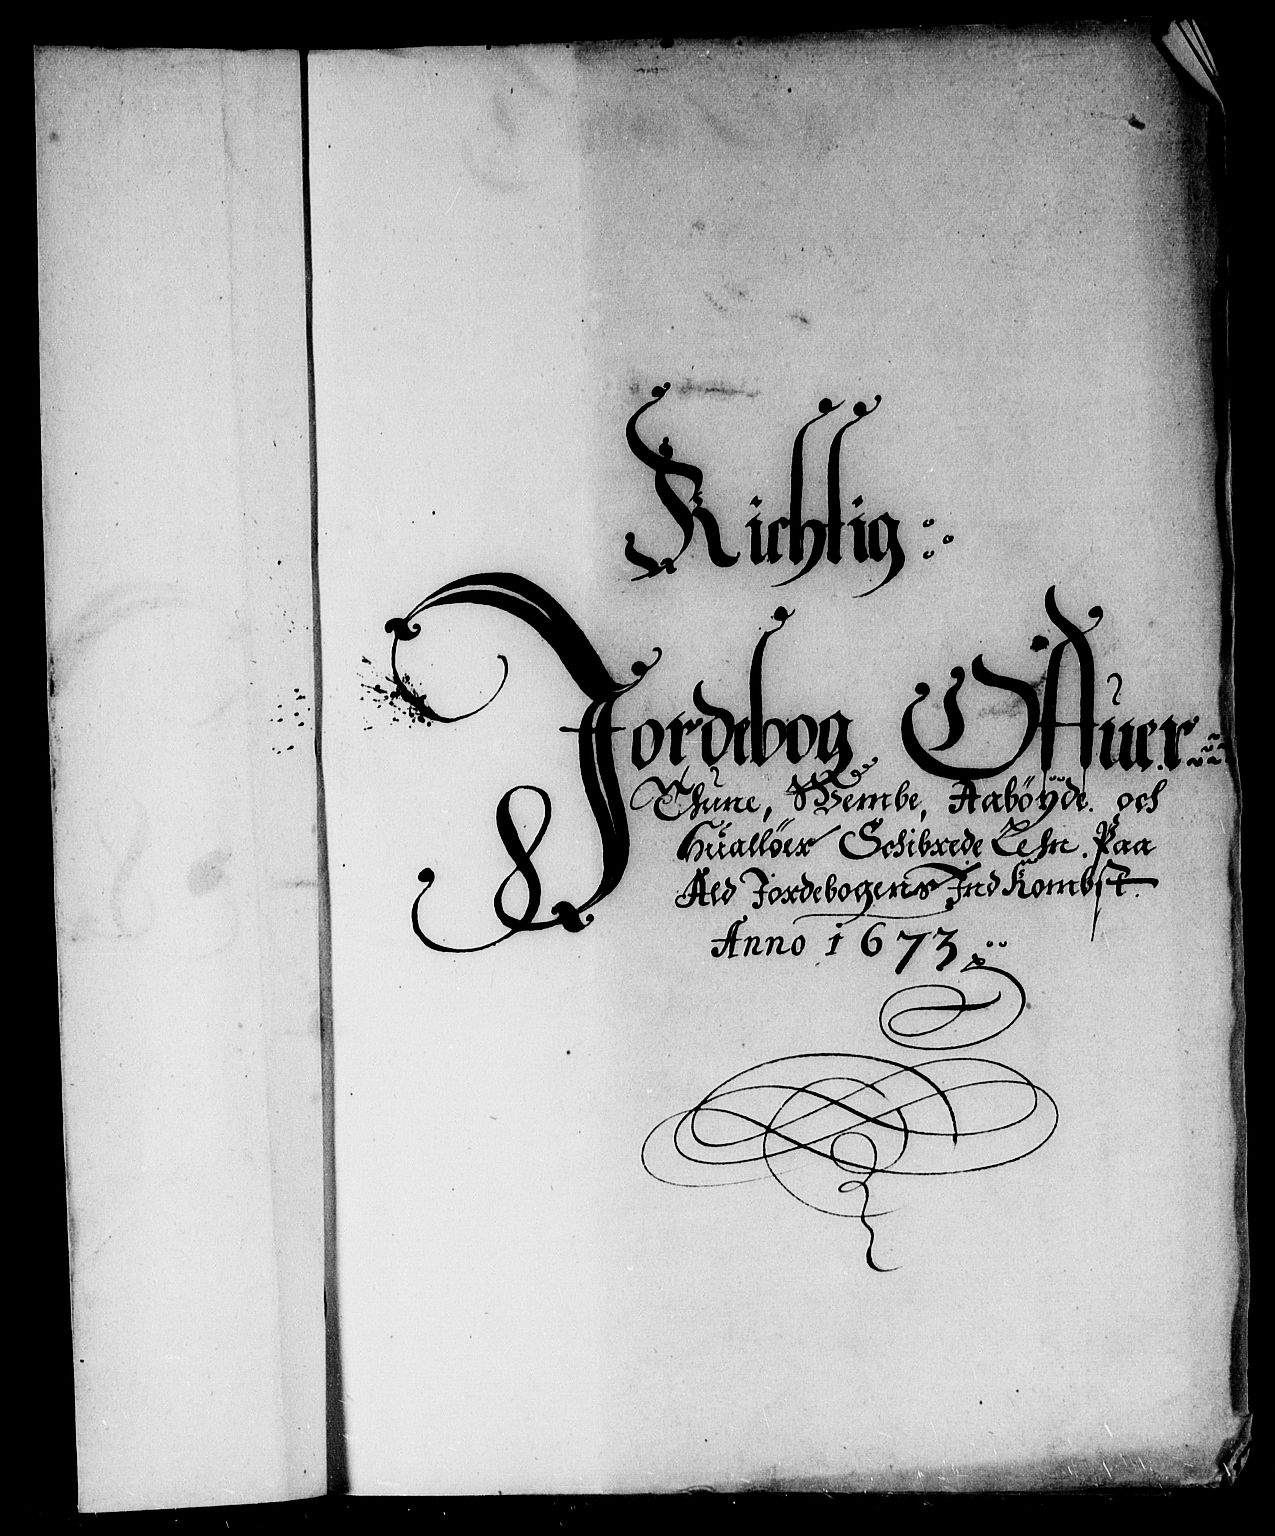 Richtig
Jordebog Offuer
Thune, Wembe, Aabøyde och
Huallöer Schibrede Lehn. Paa
Ald Jordebogens IndKombst.
Anno 1673